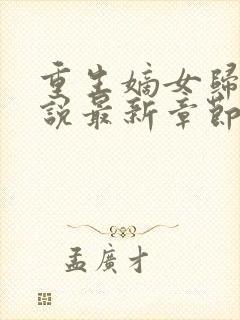 重生嫡女歸
說最新章節
孟廣才